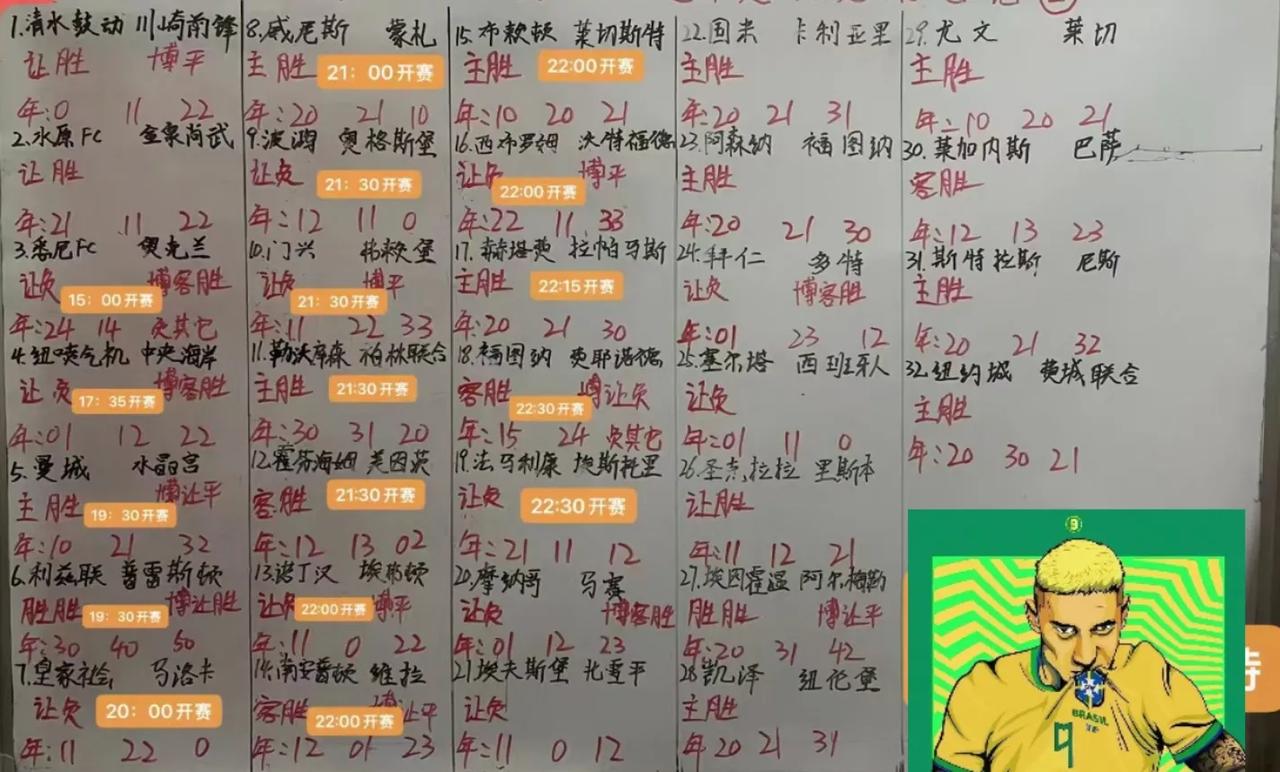 1.清水鼓动 川崎前锋
让胜 博平
年:0 11 22
2.水原FC 金泉尚武
让胜
年:21 11 22
3.悉尼FC 奥克兰
让负 博客胜
15:00开赛
年:24 14 负其它
4.纽喷气机 中央海岸
让负 博客胜
17:35开赛
年:01 12 22
5.曼城 水晶宫
主胜 博让平
19:30开赛
年:10 21 32
6.利兹联 普雷斯顿
胜胜 博让胜
19:30开赛
年:30 40 50
7.皇家社会 马洛卡
让负 20:00开赛
年:11 22 0
8.威尼斯 蒙扎
主胜 21:00开赛
年:20 21 10
9.波鸿 奥格斯堡
让负 21:30开赛
年:12 11 0
10.门兴 弗赖堡
让负 博平
21:30开赛
年:11 22 33
11.勒沃库森 柏林联合
主胜 21:30开赛
年:30 31 20
12.霍芬海姆 美因茨
客胜 21:30开赛
年:12 13 02
13.诺丁汉 埃弗顿
让负 22:00开赛 博平
年:11 0 22
14.南安普顿 维拉
客胜 博让平
22:00开赛
年:12 01 23
15.布赖顿 莱切斯特
主胜 22:00开赛
年:10 20 21
16.西布罗姆 沃特福德
让负 博平
22:00开赛
年:22 11 33
17.赫塔费 拉帕马斯
主胜 22:15开赛
年:20 21 30
18.福图纳 费耶诺德
客胜 博让负
22:30开赛
年:15 24 负其它
19.法马利康 埃斯托里
让负 22:30开赛
年:21 11 12
20.摩纳哥 马赛
让负 博客胜
年:01 12 23
21.埃夫斯堡 尤雪平
让负
年:11 0 12
22.国米 卡利亚里
主胜
年:20 21 31
23.阿森纳 福图纳
主胜
年:20 21 30
24.拜仁 多特
让负 博客胜
年:01 23 12
25.塞尔塔 西班牙人
让负
年:01 11 0
26.圣克拉拉 里斯本
让胜
年:11 12 21
27.埃因霍温 阿尔梅勒
胜胜 博让平
年:20 31 42
28.凯泽 纽伦堡
主胜
年20 21 31
29.尤文 莱切
主胜
年:10 20 21
30.莱加内斯 巴萨
客胜
年:12 13 23
31.斯特拉斯 尼斯
主胜
年:20 21 32
32.纽约城 费城联合
主胜
年:20 30 21
9
BRASIL
9